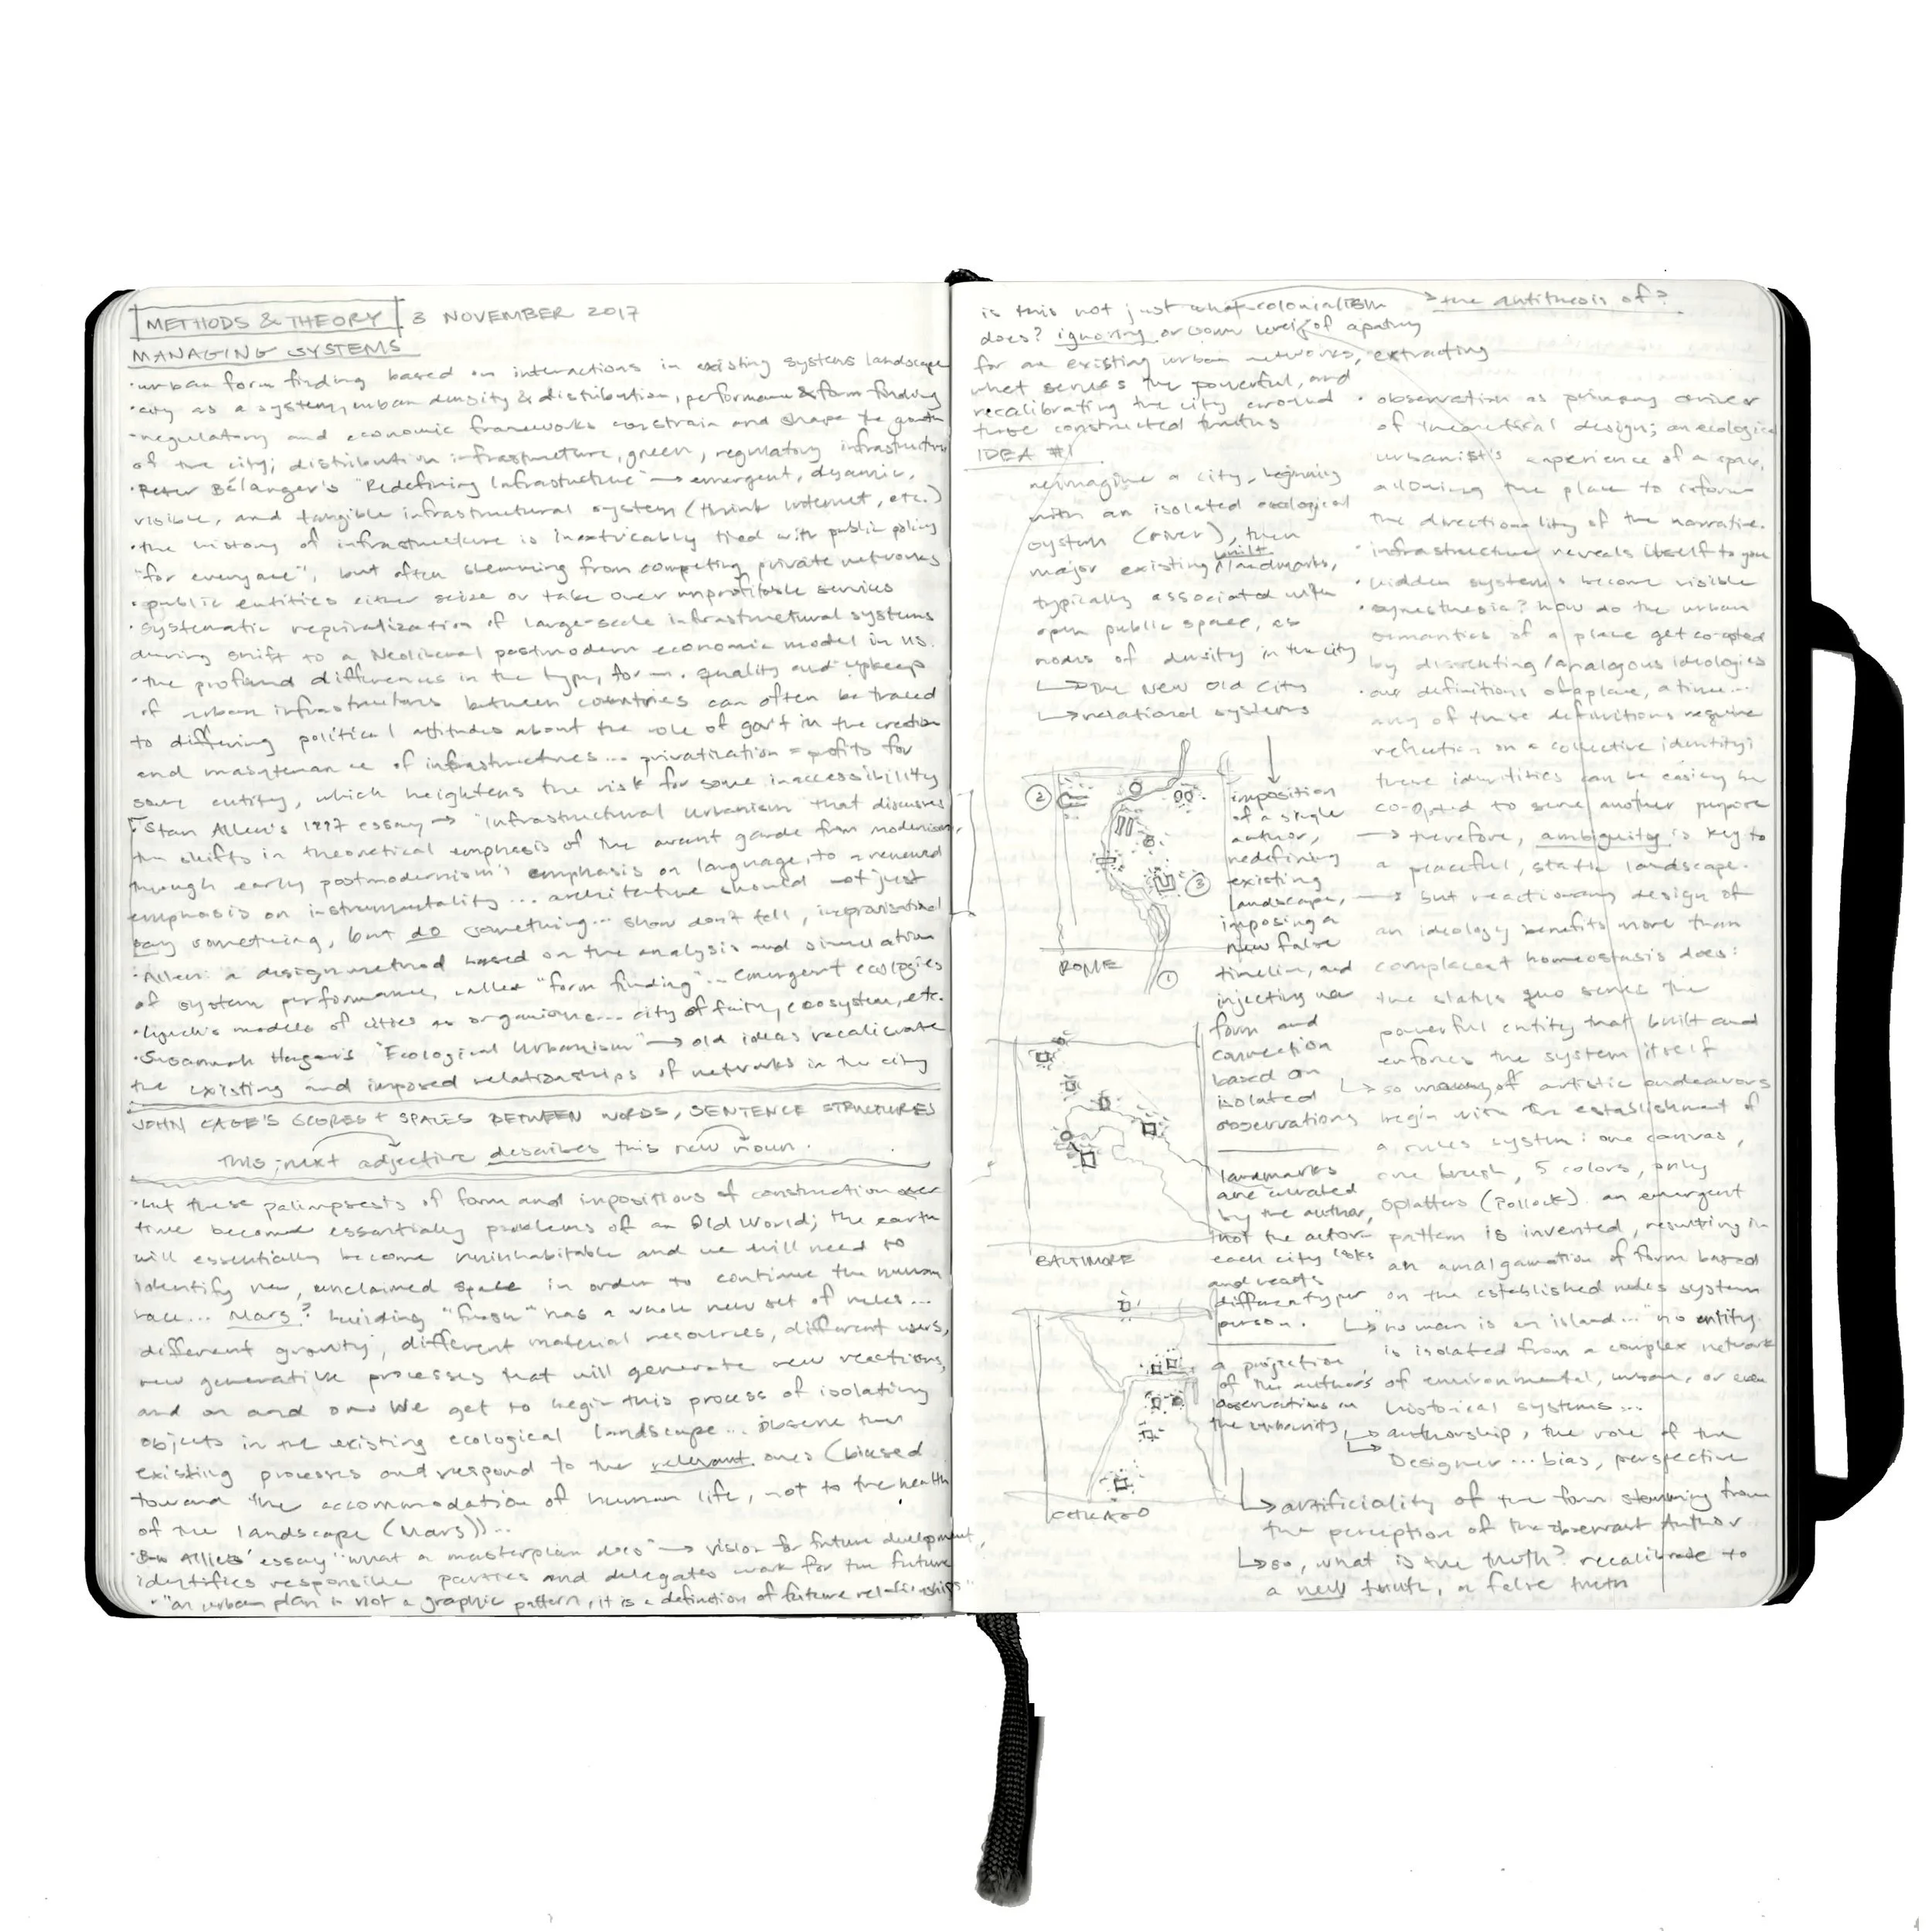 METHODS & THEORY 3 NOVEMBER 2017
MANAGING SYSTEMS
·urban form finding based on interactions in existing systems landscape
·city as a system, urban density & distribution, performance & form finding
·regulatory and economic frameworks constrain and shape the growth
of the city; distribution infrastructure, green, regulatory infrastructure
·Peter Bélanger's "Redefining Infrastructure" → emergent, dynamic,
visible, and tangible infrastructural system (think internet, etc.)
·the history of infrastructure is inextricably tied with public policy
"for everyone", but often stemming from competing private networks
·public entities either seize or take over unprofitable services
·systematic reprivatization of large-scale infrastructural systems
during shift to a Neoliberal postmodern economic model in US.
·the profound differences in the type, form, quality and upkeep
of urban infrastructures between countries can often be traced
to differing political attitudes about the role of gov't in the creation
and maintenance of infrastructures... privatization = profits for
some entity, which heightens the risk for some inaccessibility
·Stan Allen's 1997 essay → "Infrastructural Urbanism" that discusses
the shifts in theoretical emphasis of the avant garde from modernism,
through early postmodernism's emphasis on language, to a renewed
emphasis on instrumentality... architecture should not just
say something, but do something... show don't tell, improvisational
·Allen: a design method based on the analysis and simulation
of system performance, called "form finding"... emergent ecologies
·Lynch's models of cities as organisms... city of faith, ecosystem, etc.
·Susannah Hagan's "Ecological Urbanism" → old ideas recalibrate
the existing and imposed relationships of networks in the city
JOHN CAGE'S SCORES + SPACES BETWEEN WORDS, SENTENCE STRUCTURES
This next adjective describes this new noun.
·but these palimpsests of form and impositions of construction over
time become essentially problems of an Old World; the earth
will essentially become uninhabitable and we will need to
identify new, unclaimed space in order to continue the human
race... Mars? building "fresh" has a whole new set of rules...
different gravity, different material resources, different users,
new generative processes that will generate new reactions,
and on and on. We get to begin this process of isolating
objects in the existing ecological landscape... observe their
existing processes and respond to the relevant ones (biased
toward the accommodation of human life, not to the health
of the landscape (Mars))...
essay "what a masterplan does" → vision for future development,
identifies responsible parties and delegates work for the future
·"an urban plan is not a graphic pattern, it is a definition of future relationships"
is this not just what colonialism → the antithesis of?
does? ignoring or some level of apathy
for an existing urban networks, extracting
what serves the powerful, and
recalibrating the city around
those constructed truths
IDEA #1
reimagine a city, beginning
with an isolated ecological
system (river), then
major existing built landmarks,
typically associated with
open public space, as
nodes of density in the city
↳ The New Old City
↳ relational systems
②
③
①
ROME
BALTIMORE
CHICAGO
imposition
of a single
author,
redefining
existing
landscape,
imposing a
new false
timeline, and
injecting new
form and
connection
based on
isolated
observations
landmarks
are curated
by the author,
not the actor
each city looks
and reads
different per
person.
a projection
of the author's
observations on
the urbanity
· observation as primary driver
of theoretical design; an ecological
urbanist's experience of a space,
allowing the place to inform
the directionality of the narrative.
· infrastructure reveals itself to you
· hidden systems become visible
· synesthesia? how do the urban
semantics of a place get co-opted
by dissenting/analogous ideologies
· our definitions of a place, a time...
any of these definitions require
reflection on a collective identity;
these identities can be easily be
co-opted to serve another purpose
→ therefore, ambiguity is key to
a peaceful, static landscape.
→ but reactionary design of
an ideology benefits more than
complacent homeostasis does:
the status quo serves the
powerful entity that built and
enforces the system itself
↳ so many of artistic endeavors
begin with the establishment of
a rules system: one canvas,
one brush, 5 colors, only
splatters (Pollock). an emergent
pattern is invented, resulting in
an amalgamation of form based
on the established rules system
↳ "no man is an island..." no entity
is isolated from a complex network
of environmental, urban, or even
historical systems...
↳ authorship, the role of the
↳ Designer... bias, perspective
↳ artificiality of the form stemming from
the perception of the observant Author
↳ so, what is the truth? recalibrate to
a new truth, a false truth